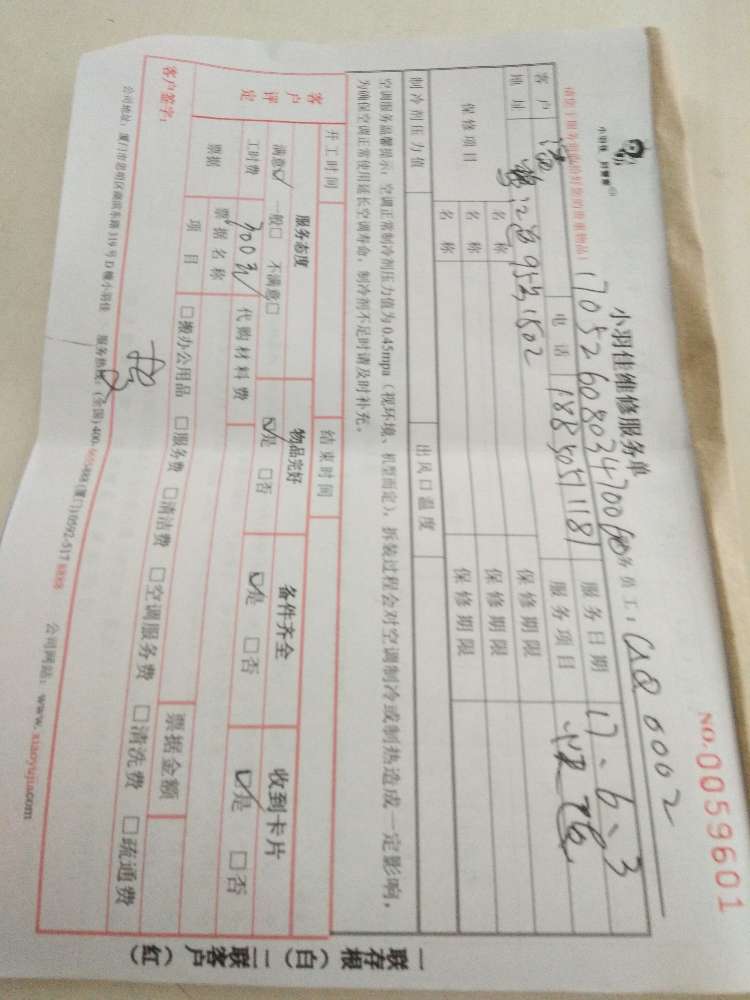 NO.0059601
小羽佳维修服务单
请放下服务前保管好您的贵重物品!
17052608034700
务员工:
0002
客户
电话
18850511181
服务日期
17、6、3
地址
95
1502
服务项目
保修项目
名称
保修期限
名称
保修期限
名称
保修期限
制冷剂压力值
出风口温度
空调服务温馨提示:空调正常制冷剂压力值为0.45mpa(视环境、机型而定),拆装过程会对空调制冷或制热造成一定影响,
为确保空调正常使用延长空调寿命,制冷剂不足时请及时补充。
开工时间
结束时间
客户评定
服务态度
物品完好
备件齐全
收到卡片
满意☑ 一般□ 不满意□
☑是 □否
☑是 □否
☑是 □否
工时费
300元
代购材料费
票据
票据名称
票据金额
项目
□搬办公用品 □服务费 □清洁费 □空调服务费 □清洗费 □疏通费
客户签字:
服务热线:(全国)400- (厦门)0592-517 8888
公司网站:www.xiaoyujia.com
一联存根(白)二联客户(红)